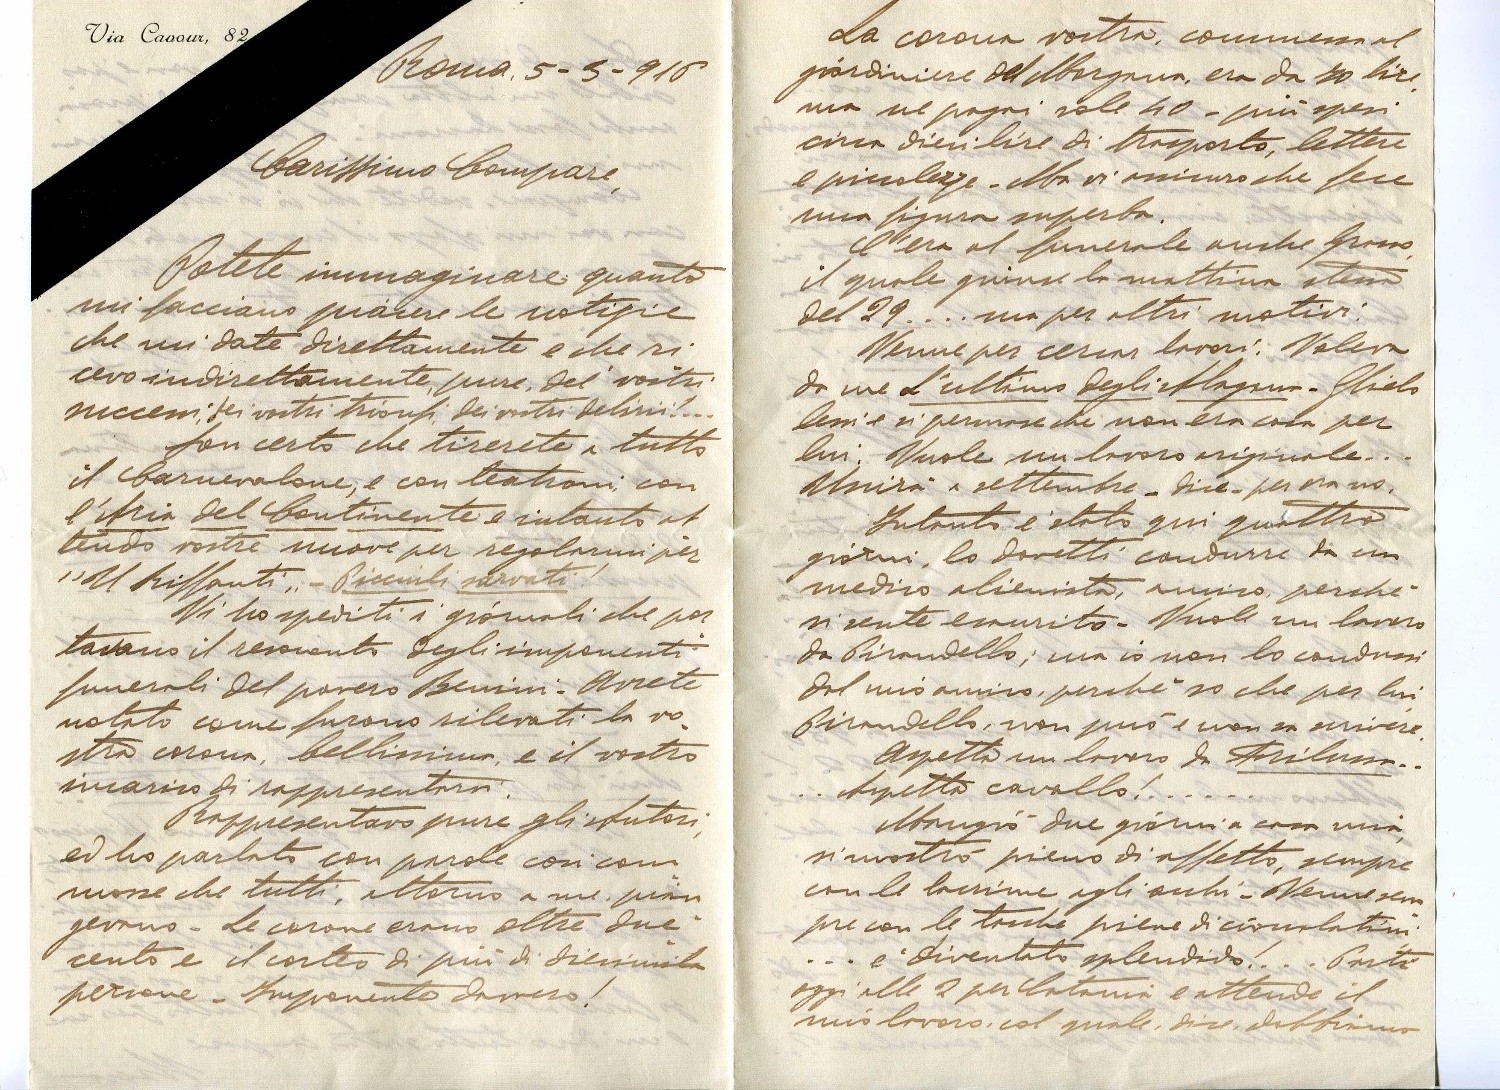 Via Cavour, 82
Roma, 5-3-916
Carissimo Compare,
Potete immaginare quanto
mi facciano piacere le notizie
che mi date direttamente e che ri
cevo indirettamente, pure, dei vostri
successi, dei vostri trionfi, dei vostri delirii!...
Son certo che tirerete a tutto
il Carnevalone, e con teatroni, con
l'Aria del Continente e intanto at
tendo vostre nuove per regolarmi per
"U Riffanti". - Piccioli sarvati!
Vi ho spediti i giornali che por
tavano il resoconto degli imponenti
funerali del povero Benini - Avrete
notato come furono rilevati la vo-
stra corona, bellissima, e il vostro
incarico di rappresentarvi.
Rappresentavo pure gli Autori,
ed ho parlato con parole così com
mosse che tutti, attorno a me, pian
gevano - Le corone erano oltre due
cento e il corteo di più di diecimila
persone - Imponente davvero!
La corona vostra, commessa al
giardiniere del Morgana, era da 50 lire,
ma ne pagai sole 40 - più spesi
circa dieci lire di trasporto, lettere
e piccolezze - Ma vi assicuro che fece
una figura superba.
C'era al funerale anche Grasso,
il quale giunse la mattina stessa
del 29.... ma per altri motivi:
Venne per cercar lavori. Voleva
da me L'ultimo degli Alagona - Glielo
lessi e si persuase che non era cosa per
lui. Vuole un lavoro originale...
Unirà a settembre - dice - per ora no.
Intanto è stato qui quattro
giorni, lo dovetti condurre da un
medico alienista, amico, perché
si sente esaurito - Vuole un lavoro
da Pirandello; ma io non lo condussi
dal mio amico, perché so che per lui
Pirandello, non può e non sa scrivere.
Aspetta un lavoro da Trilussa..
.. Aspetta cavallo!......
Mangiò due giorni a casa mia,
si mostrò pieno di affetto, sempre
con le lacrime agli occhi - Venne sem
pre con le tasche piene di cioccolatini
... è diventato splendido!.... Partì
oggi alle 2 per Catania e attende il
mio lavoro, col quale, dice, dobbiamo